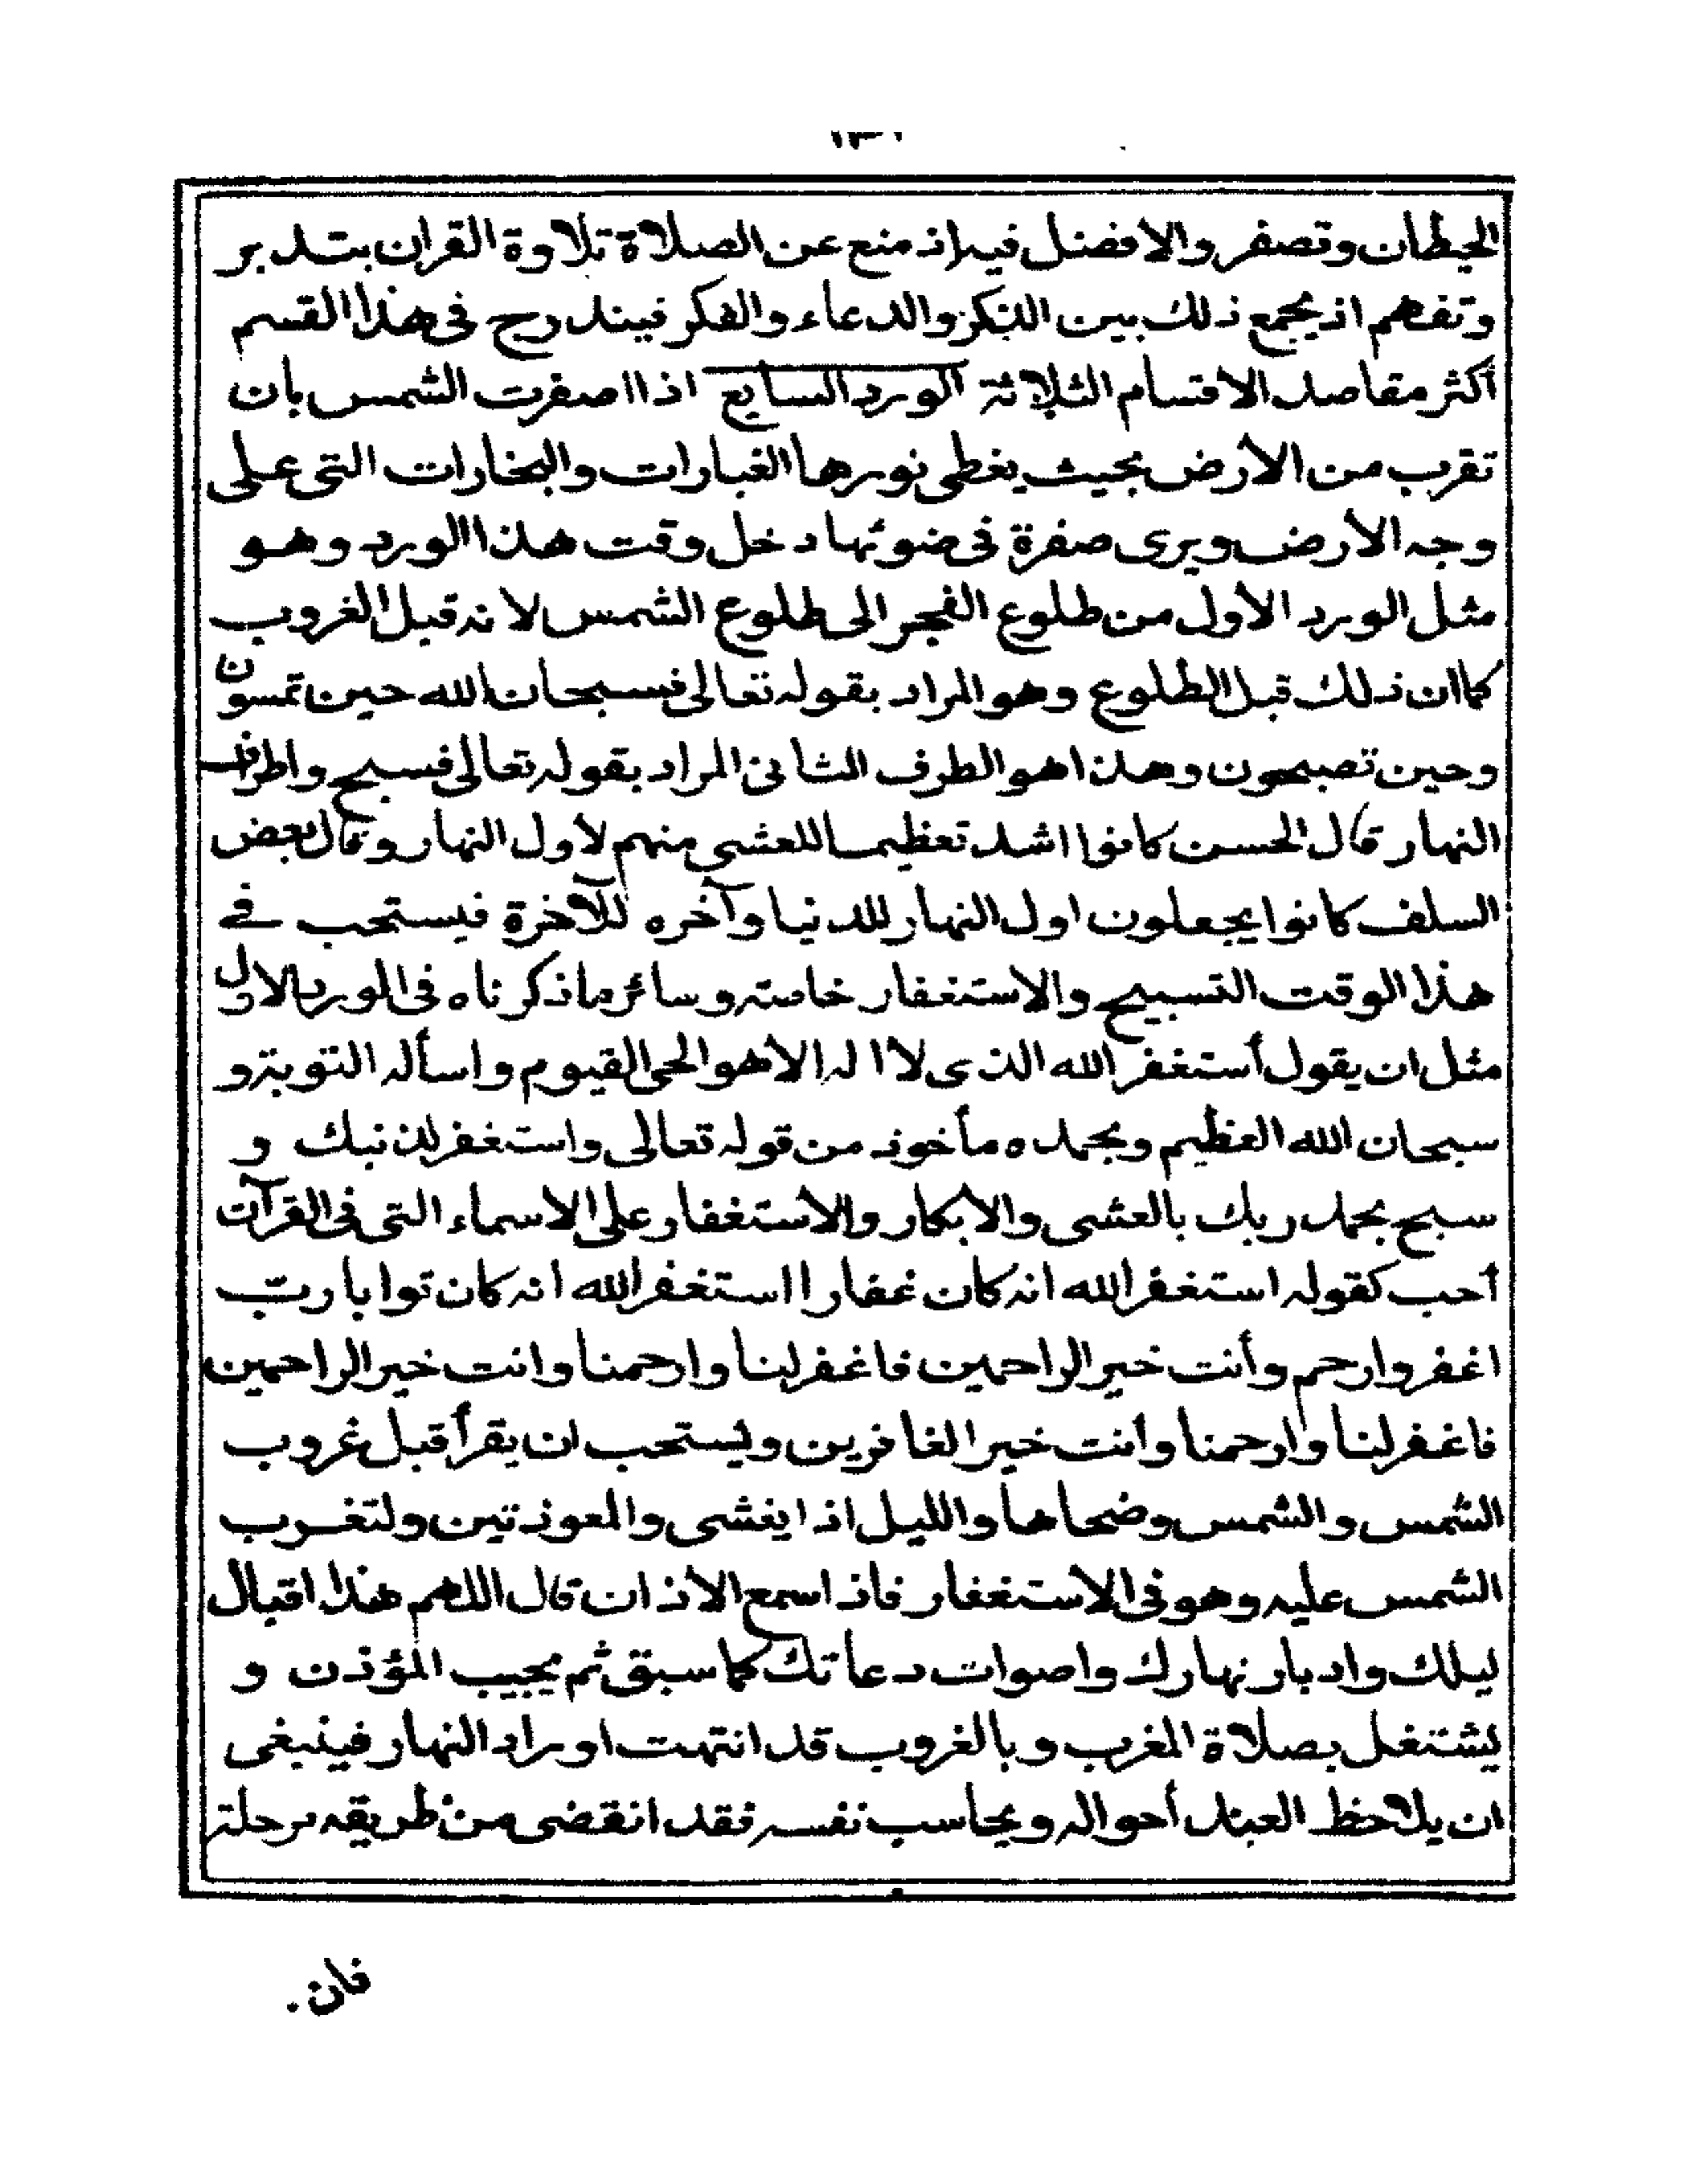 الحيطان وتصفر والافضل فيه اذ منع عن الصلاة تلاوة القران بتدبر
وتفهم اذ يجمع ذلك بين الذكر والدعاء والفكر فيندرج فى هذا القسم
أكثر مقاصد الاقسام الثلاثة الورد السابع اذا اصفرت الشمس بأن
تقرب من الأرض بحيث يغطى نورها الغبارات والبخارات التى على
وجه الأرض ويرى صفرة فى ضوئها دخل وقت هذا الورد وهو
مثل الورد الأول من طلوع الفجر الى طلوع الشمس لانه قبل الغروب
كما ان ذلك قبل الطلوع وهو المراد بقوله تعالى فسبحان الله حين تمسون
وحين تصبحون وهذا هو الطرف الثانى المراد بقوله تعالى فسبح واطراف
النهار قال الحسن كانوا اشد تعظيما للعشى منهم لأول النهار وقال بعض
السلف كانوا يجعلون اول النهار للدنيا وآخره للآخرة فيستحب في
هذا الوقت التسبيح والاستغفار خاصة وسائر ما ذكرناه فى الورد الاول
مثل ان يقول أستغفر الله الذى لا اله الا هو الحى القيوم واسأله التوبة و
سبحان الله العظيم وبحمده مأخوذ من قوله تعالى واستغفر لذنبك و
سبح بحمد ربك بالعشى والابكار والاستغفار على الاسماء التى فى القرآن
أحب كقوله استغفر الله انه كان غفارا استغفر الله انه كان توابا رب
اغفر وارحم وأنت خير الراحمين فاغفر لنا وارحمنا وانت خير الراحمين
فاغفر لنا وارحمنا وأنت خير الغافرين ويستحب ان يقرأ قبل غروب
الشمس والشمس وضحاها والليل اذا يغشى والمعوذتين ولتغرب
الشمس عليه وهو فى الاستغفار فاذا سمع الاذان قال اللهم هذا اقبال
ليلك وادبار نهارك واصوات دعاتك كما سبق ثم يجيب المؤذن و
يشتغل بصلاة المغرب وبالغروب قد انتهت اوراد النهار فينبغى
ان يلاحظ العبد أحواله ويحاسب نفسه فقد انقضى من طريقه مرحلة
فان